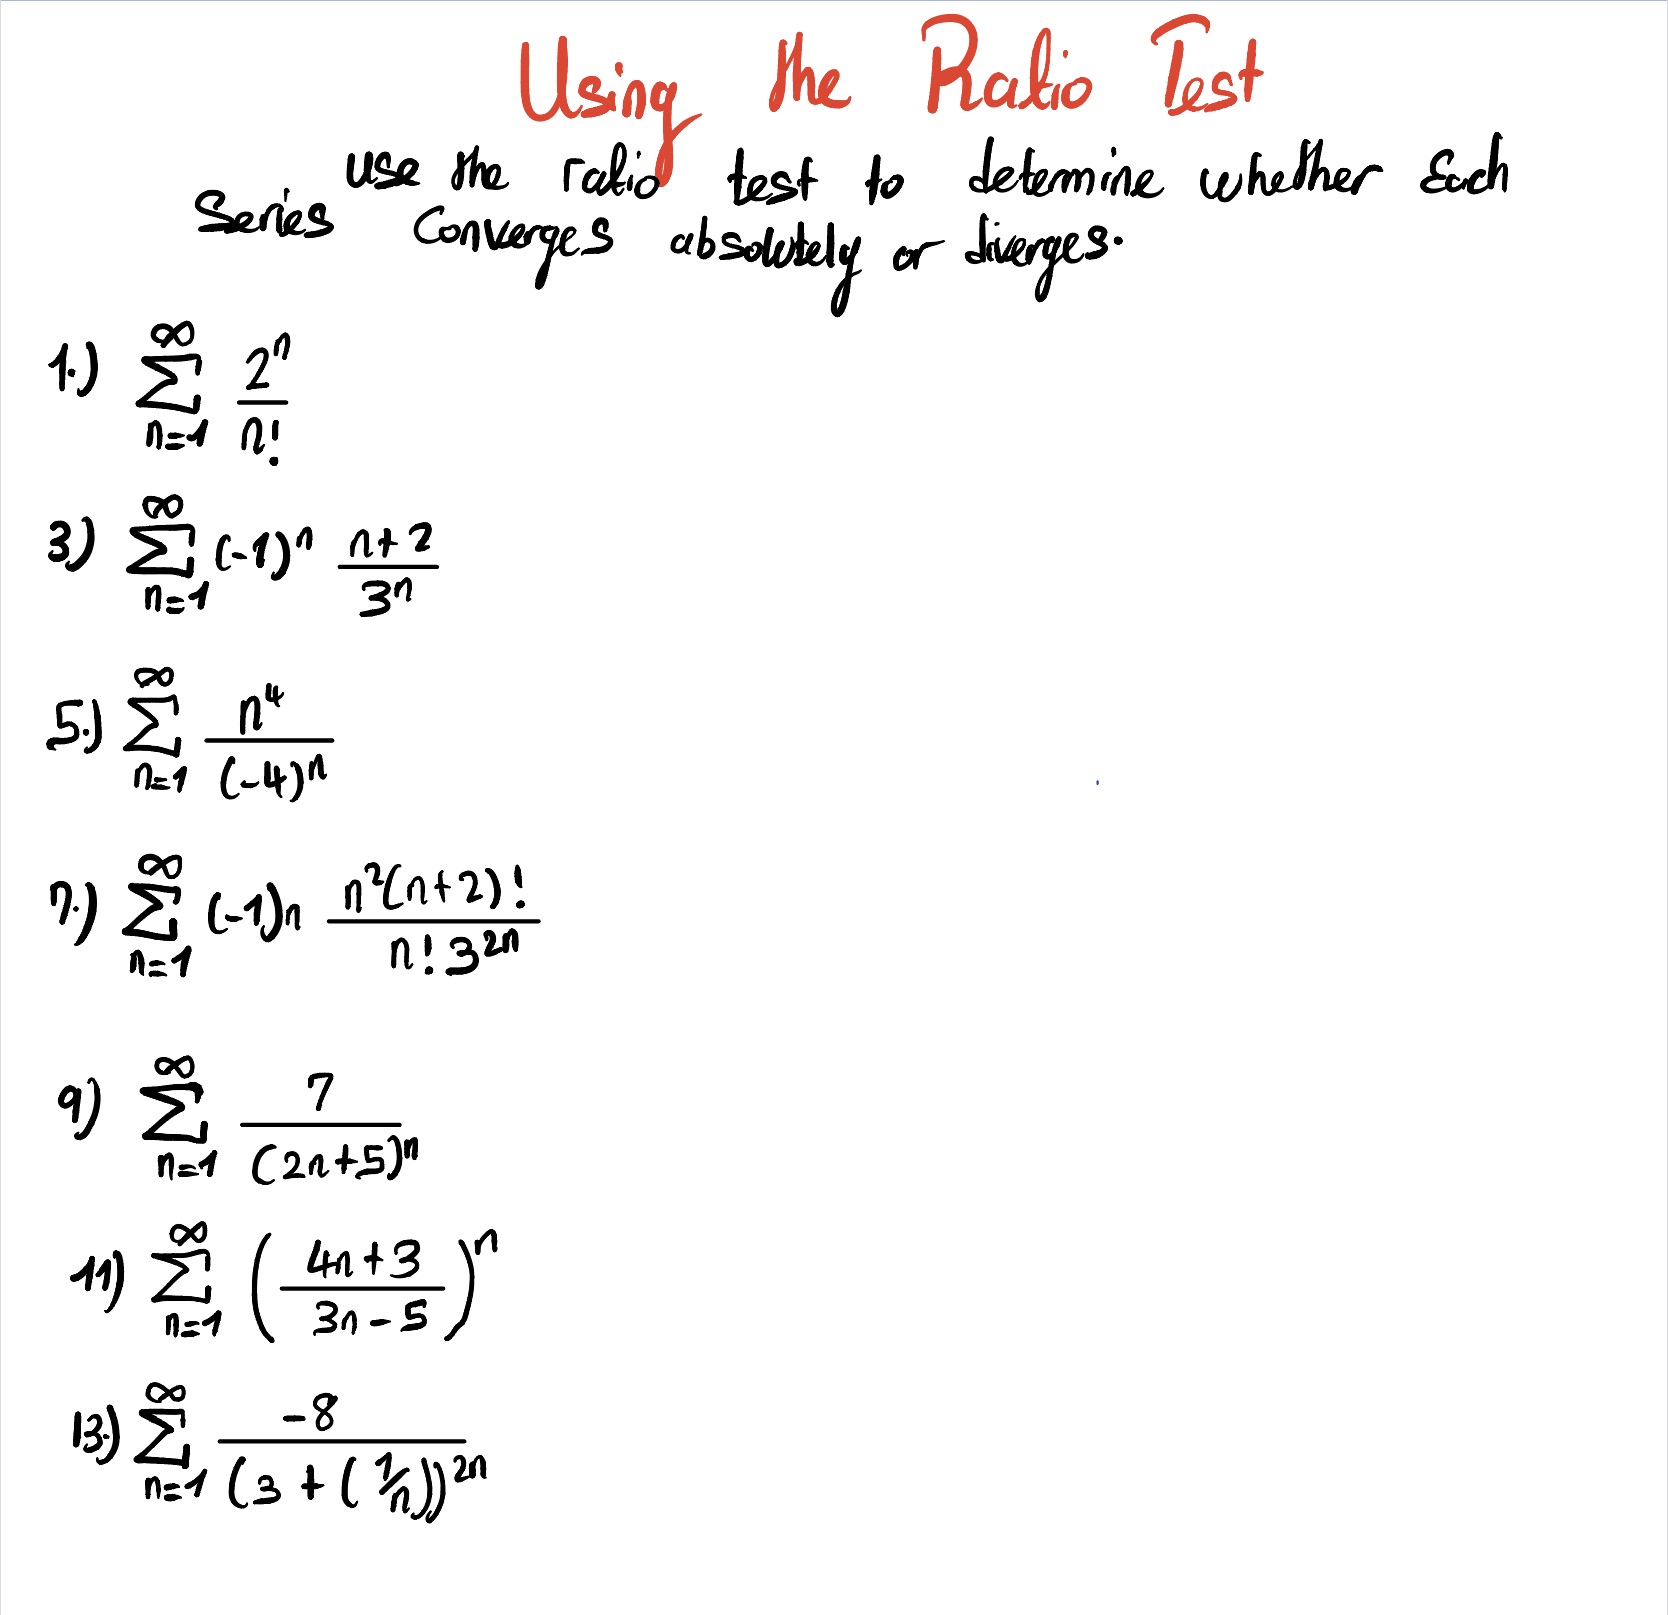 Using the Ratio Test
use the ratio test to determine whether Each
Series Converges absolutely or diverges.
1.) ∞ ∑ n=1 2ⁿ / n!
3.) ∞ ∑ n=1 (-1)ⁿ (n+2) / 3ⁿ
5.) ∞ ∑ n=1 n⁴ / (-4)ⁿ
7.) ∞ ∑ n=1 (-1)n n²(n+2)! / n! 3²ⁿ
9) ∞ ∑ n=1 7 / (2n+5)ⁿ
11) ∞ ∑ n=1 ((4n+3) / (3n-5))ⁿ
13.) ∞ ∑ n=1 -8 / (3 + (1/n))²ⁿ